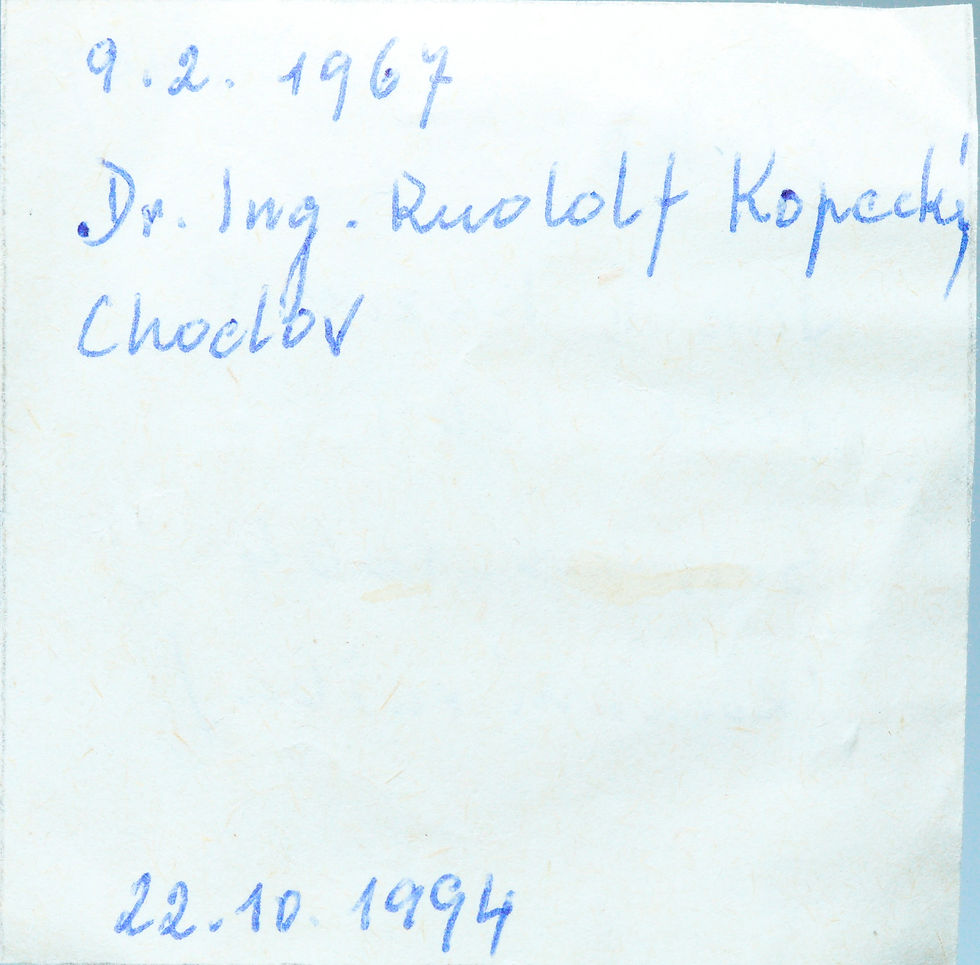 9.2. 1967
Dr. Ing. Rudolf Kopecký
Chodov
22.10. 1994